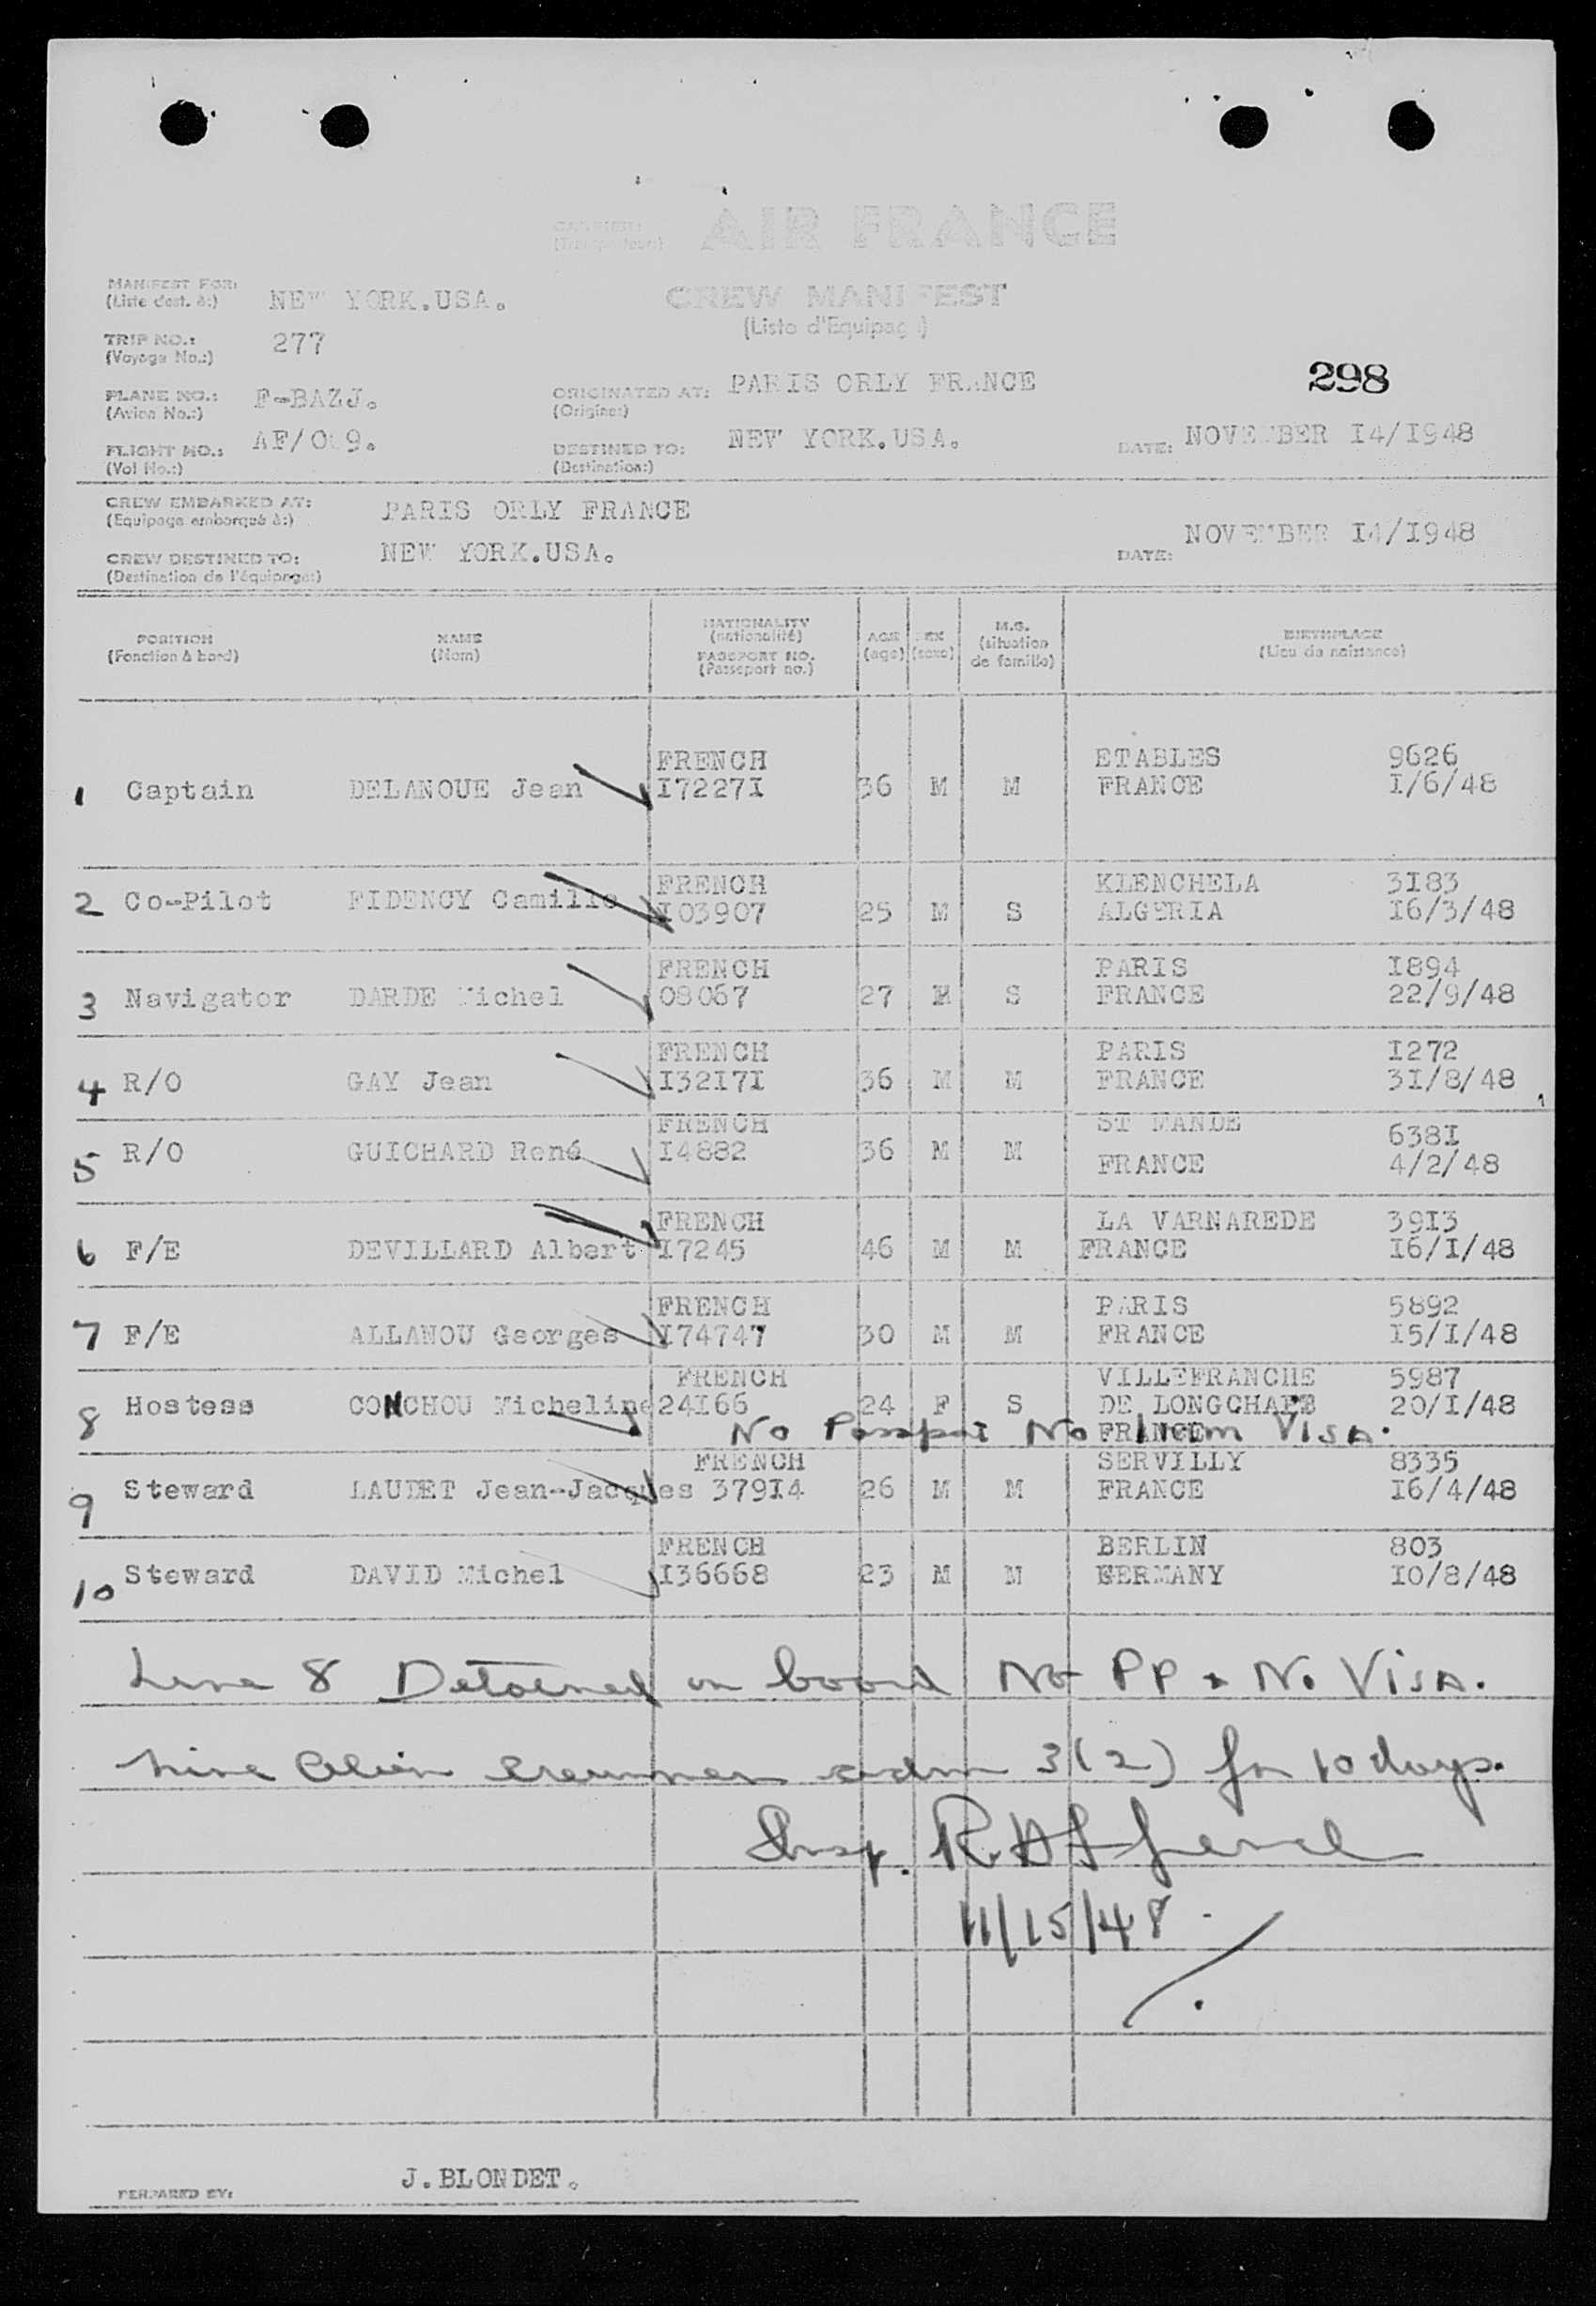 CARRIER: AIR FRANCE
(Transporteur)
MANIFEST FOR: NEW YORK.USA.
(Liste dest. à:)
CREW MANIFEST
(Liste d'Equipage)
TRIP NO.: 277
(Voyage No.:)
298
PLANE NO.: F-BAZJ.
(Avion No.:)
ORIGINATED AT: PARIS ORLY FRANCE
(Origine:)
FLIGHT NO.: AF/009.
(Vol No.:)
DESTINED TO: NEW YORK.USA.
(Destination:)
DATE: NOVEMBER I4/I948
CREW EMBARKED AT: PARIS ORLY FRANCE
(Equipage embarqué à:)
CREW DESTINED TO: NEW YORK.USA.
(Destination de l'équipage:)
DATE: NOVEMBER I4/I948
POSITION NAME NATIONALITY AGE SEX M.S. BIRTHPLACE
(Fonction à bord) (Nom) (nationalité) (age) (sexe) (situation de famille) (Lieu de naissance)
PASSPORT NO.
(Passeport no.)
FRENCH ETABLES 9626
1 Captain DELANOUE Jean I7227I 36 M M FRANCE I/6/48
FRENCH KLENCHELA 3I83
2 Co-Pilot FIDENCY Camille I03907 25 M S ALGERIA I6/3/48
FRENCH PARIS I894
3 Navigator DARDE Michel 08067 27 M S FRANCE 22/9/48
FRENCH PARIS I272
4 R/O GAY Jean I32I7I 36 M M FRANCE 3I/8/48
FRENCH ST MANDE 638I
5 R/O GUICHARD René I4882 36 M M FRANCE 4/2/48
FRENCH LA VARNAREDE 39I3
6 F/E DEVILLARD Albert I7245 46 M M FRANCE I6/I/48
FRENCH PARIS 5892
7 F/E ALLANOU Georges I74747 30 M M FRANCE I5/I/48
FRENCH VILLEFRANCHE 5987
8 Hostess CONCHOU Micheline 24I66 24 F S DE LONGCHAPE 20/I/48
FRANCE
No Passport No Imm Visa.
FRENCH SERVILLY 8335
9 Steward LAUDET Jean-Jacques 379I4 26 M M FRANCE I6/4/48
FRENCH BERLIN 803
10 Steward DAVID Michel I36668 23 M M GERMANY I0/8/48
Line 8 Detained on board No PP & No Visa.
Nine Alien Crewmen adm 3(2) for 10 days.
Insp.
11/15/48
PERPARED BY: J.BLONDET.